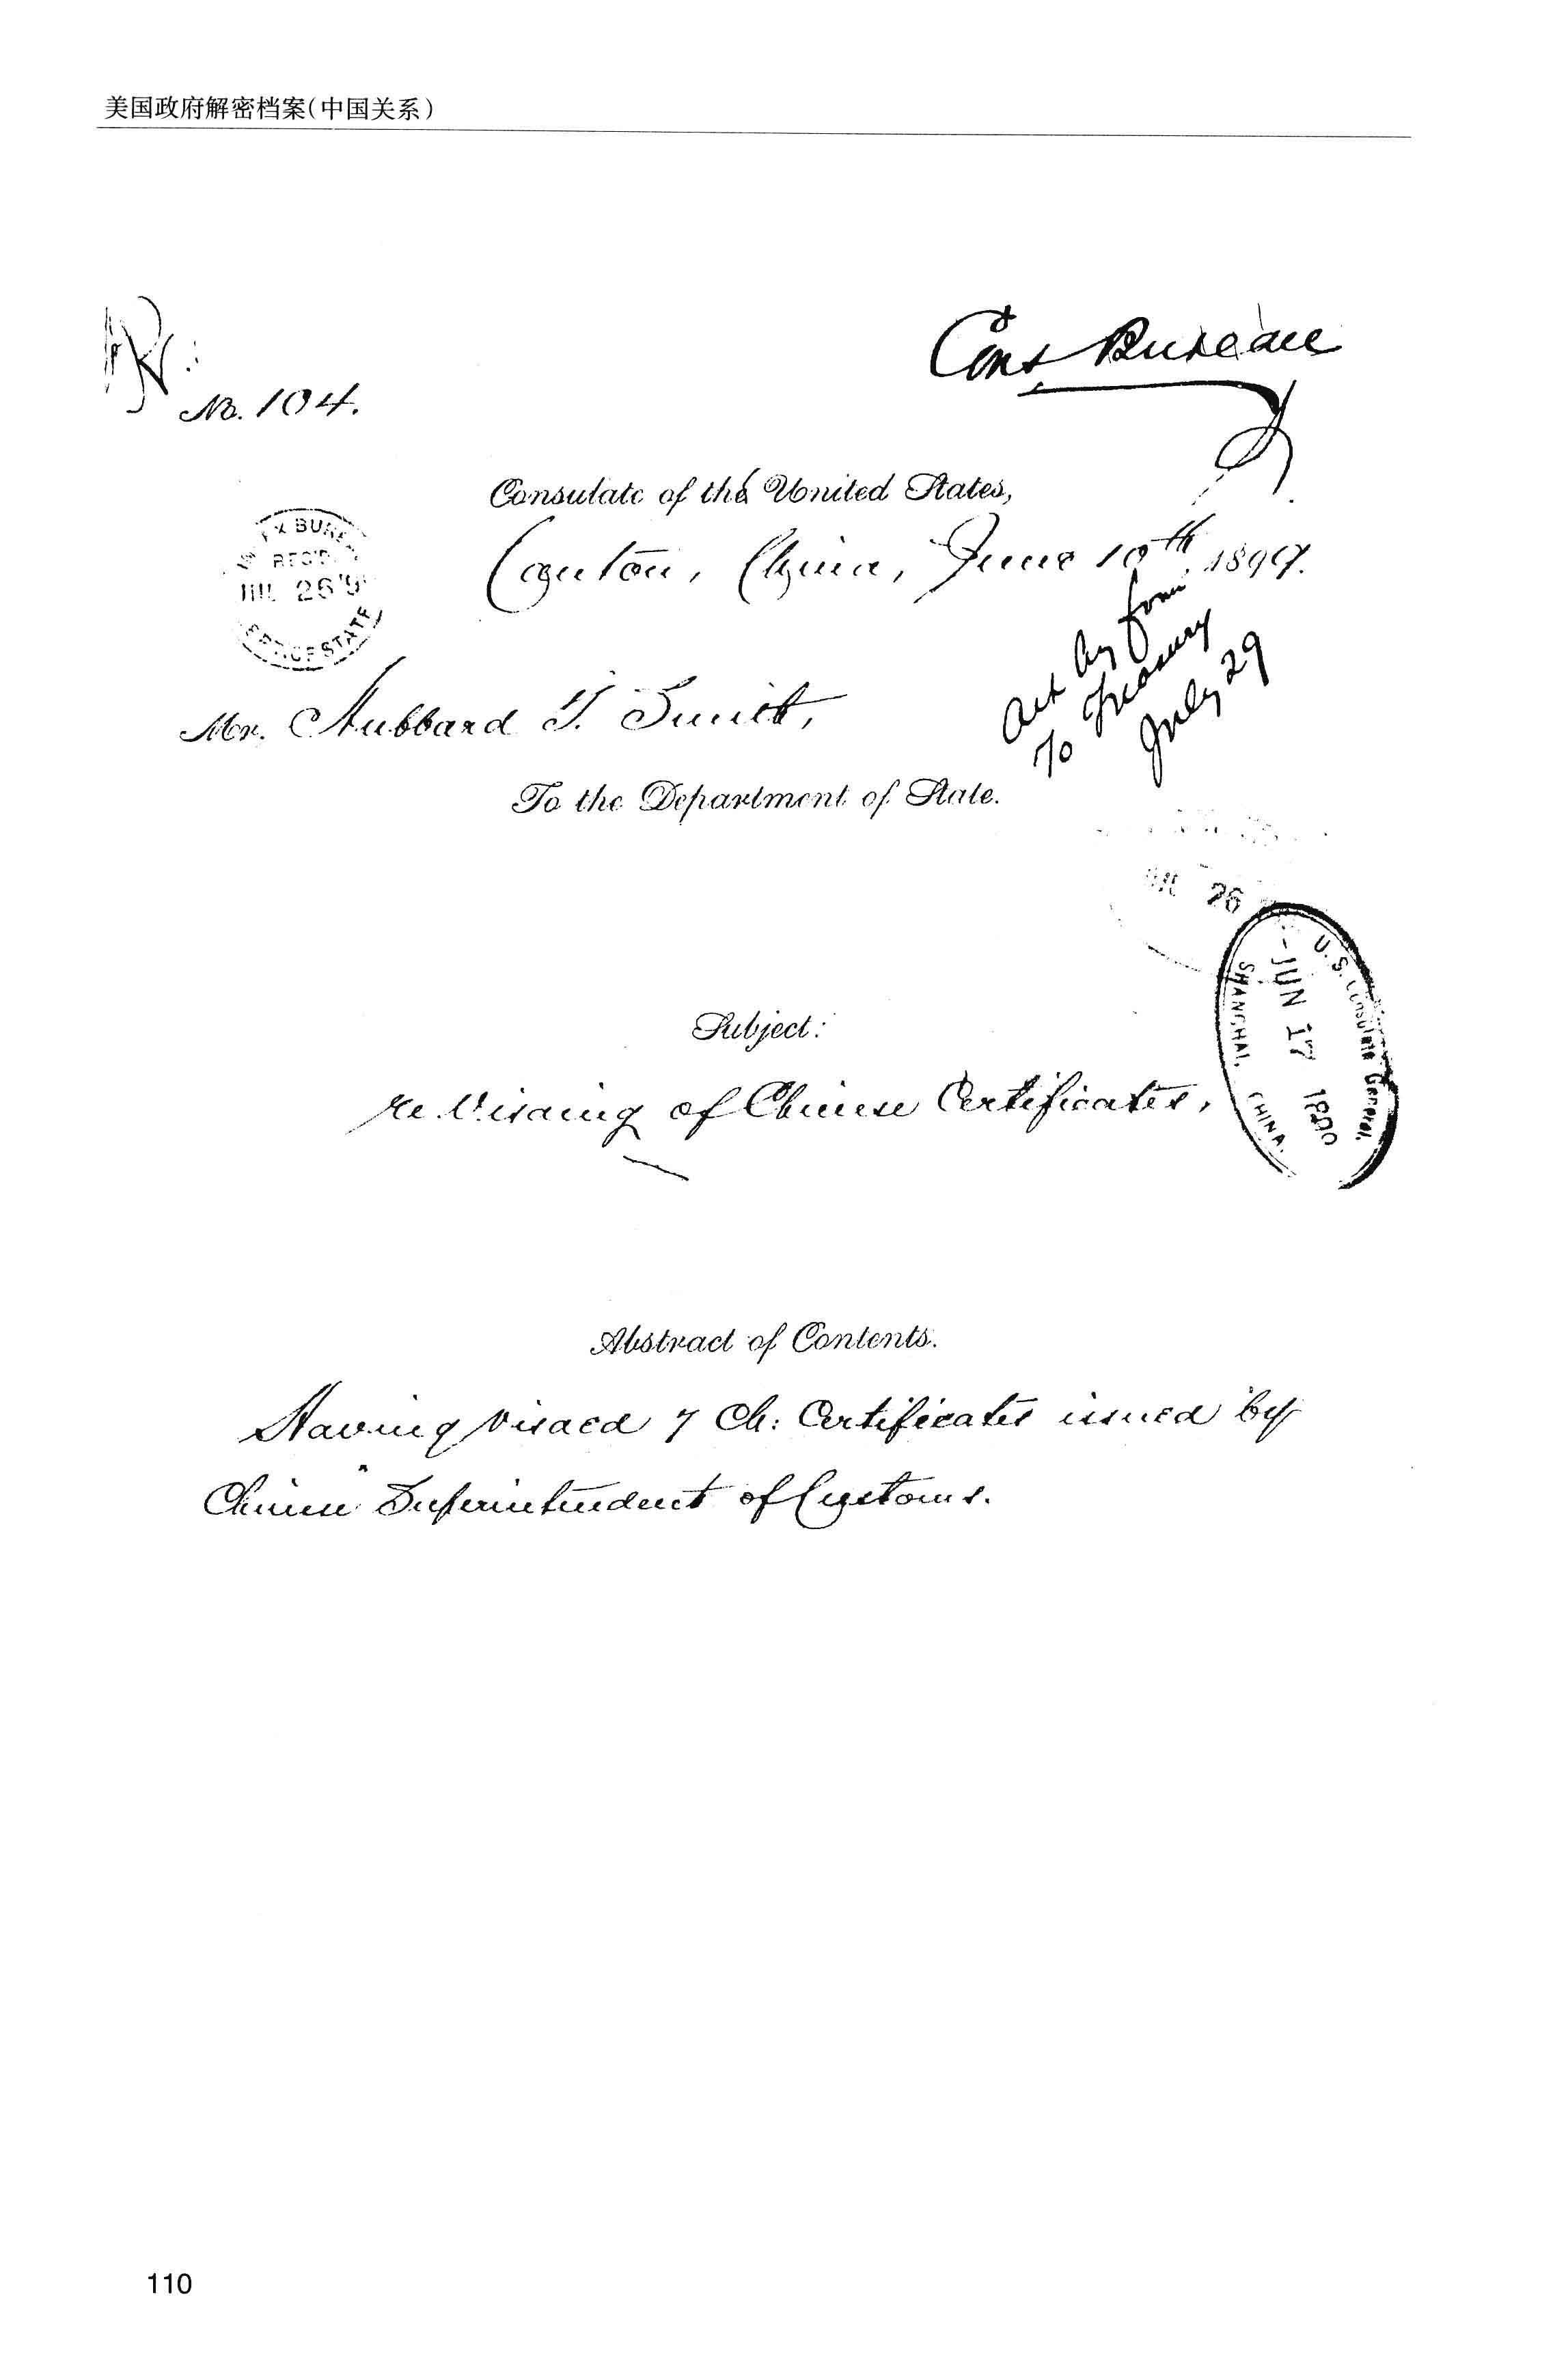 美国政府解密档案(中国关系)
Cons Bureau
No. 104.
Consulate of the United States,
Canton, China, June 10th, 1899.
BUREAU
REC'D
JUL 26 '9
DEPT. OF STATE
Ack by form
To Treasury
July 29
Mr. Hubbard T. Smith,
To the Department of State.
26
U.S. Consulate General,
JUN 17 1899
SHANGHAI, CHINA.
Subject:
re Visaing of Chinese Certificates,
Abstract of Contents.
Having visaed 7 Ch: Certificates issued by
Chinese Superintendent of Customs.
110